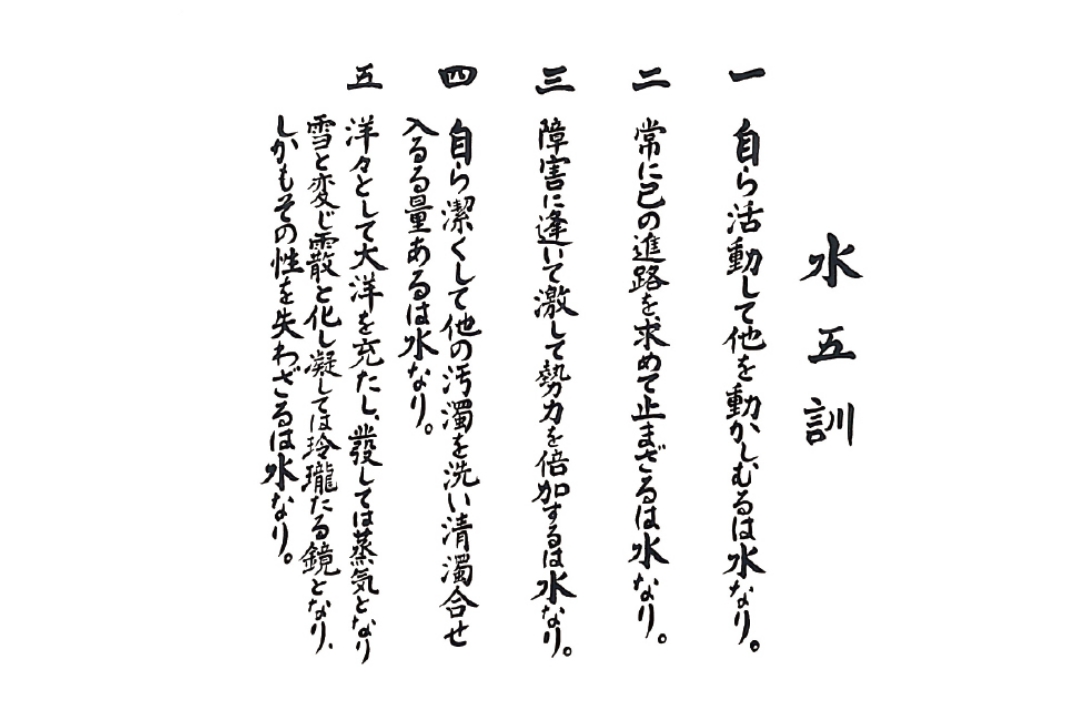 水五訓
一 自ら活動して他を動かしむるは水なり。
二 常に己の進路を求めて止まざるは水なり。
三 障害に逢いて激して勢力を倍加するは水なり。
四 自ら潔くして他の汚濁を洗い清濁合せ
入るる量あるは水なり。
五 洋々として大洋を充たし、發しては蒸気となり
雪と変じ霰と化し凝しては玲瓏たる鏡となり、
しかもその性を失わざるは水なり。